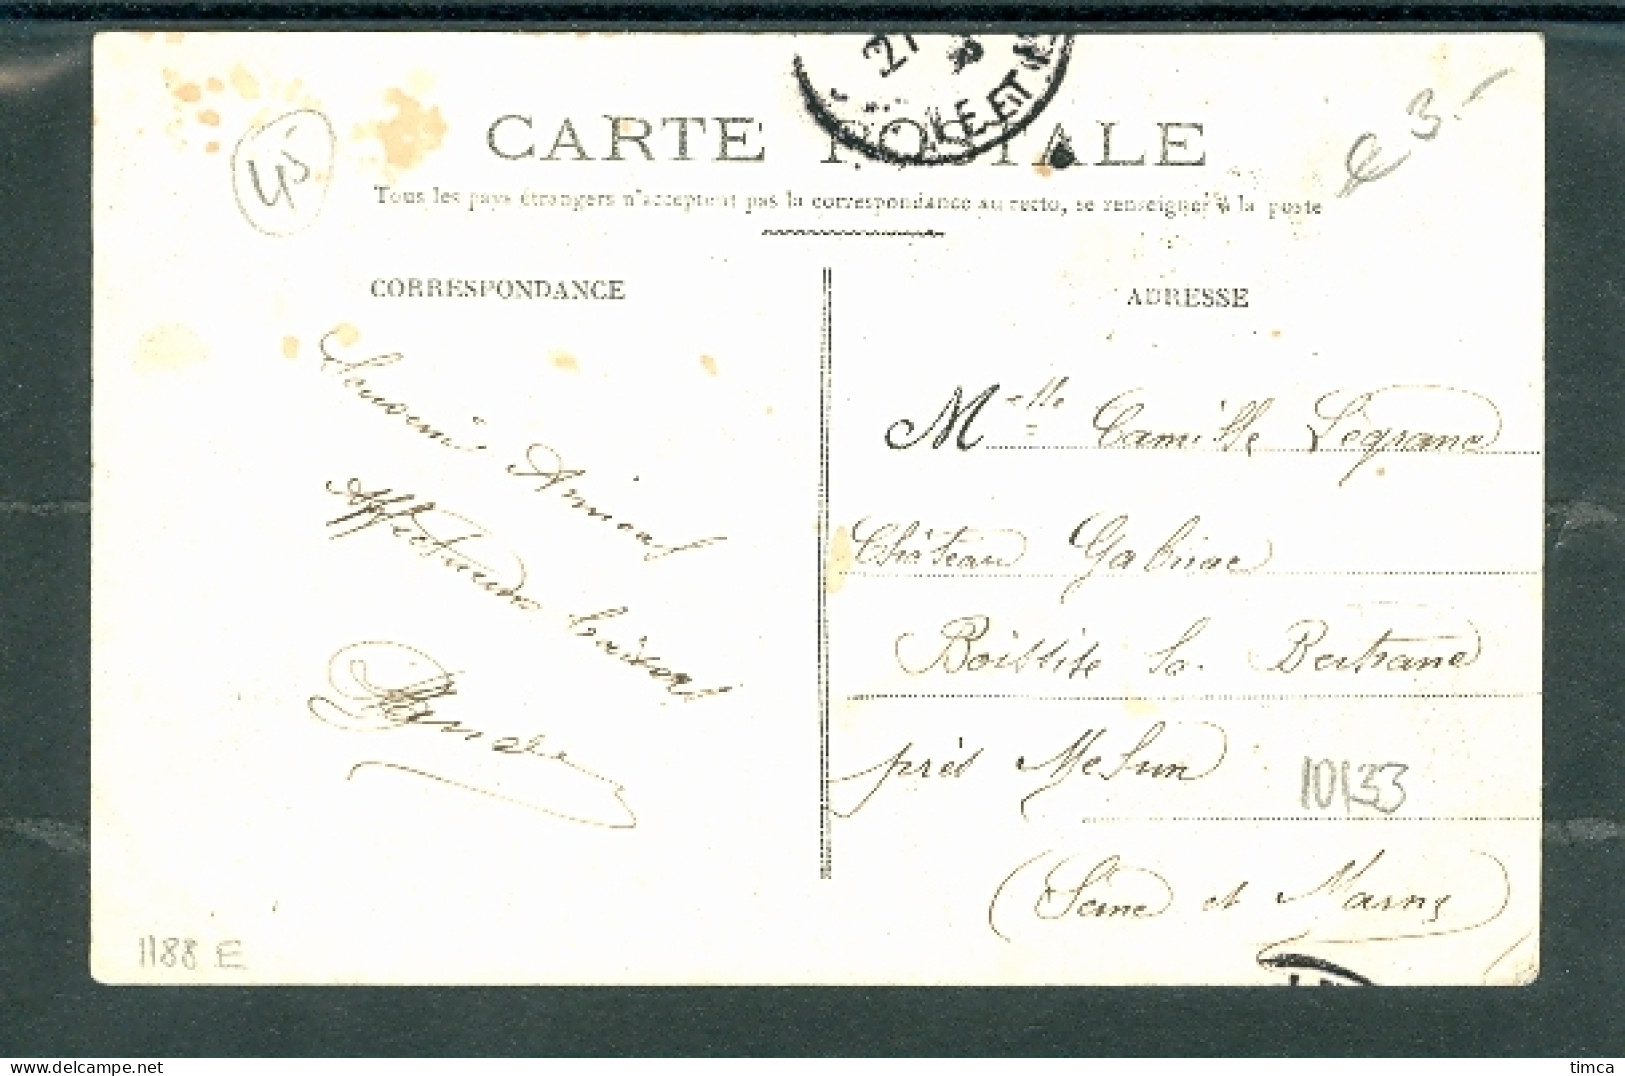 27
LE-ET
45
€ 3.-
CARTE POSTALE
Tous les pays étrangers n'acceptent pas la correspondance au recto, se renseigner à la poste
CORRESPONDANCE
ADRESSE
Souvenir Amical
Affectueux baisers
Mlle Camille Legrand
Château Gabriac
Boissise la Bertrand
près Melun
10133
(Seine et Marne)
1188 E
timca